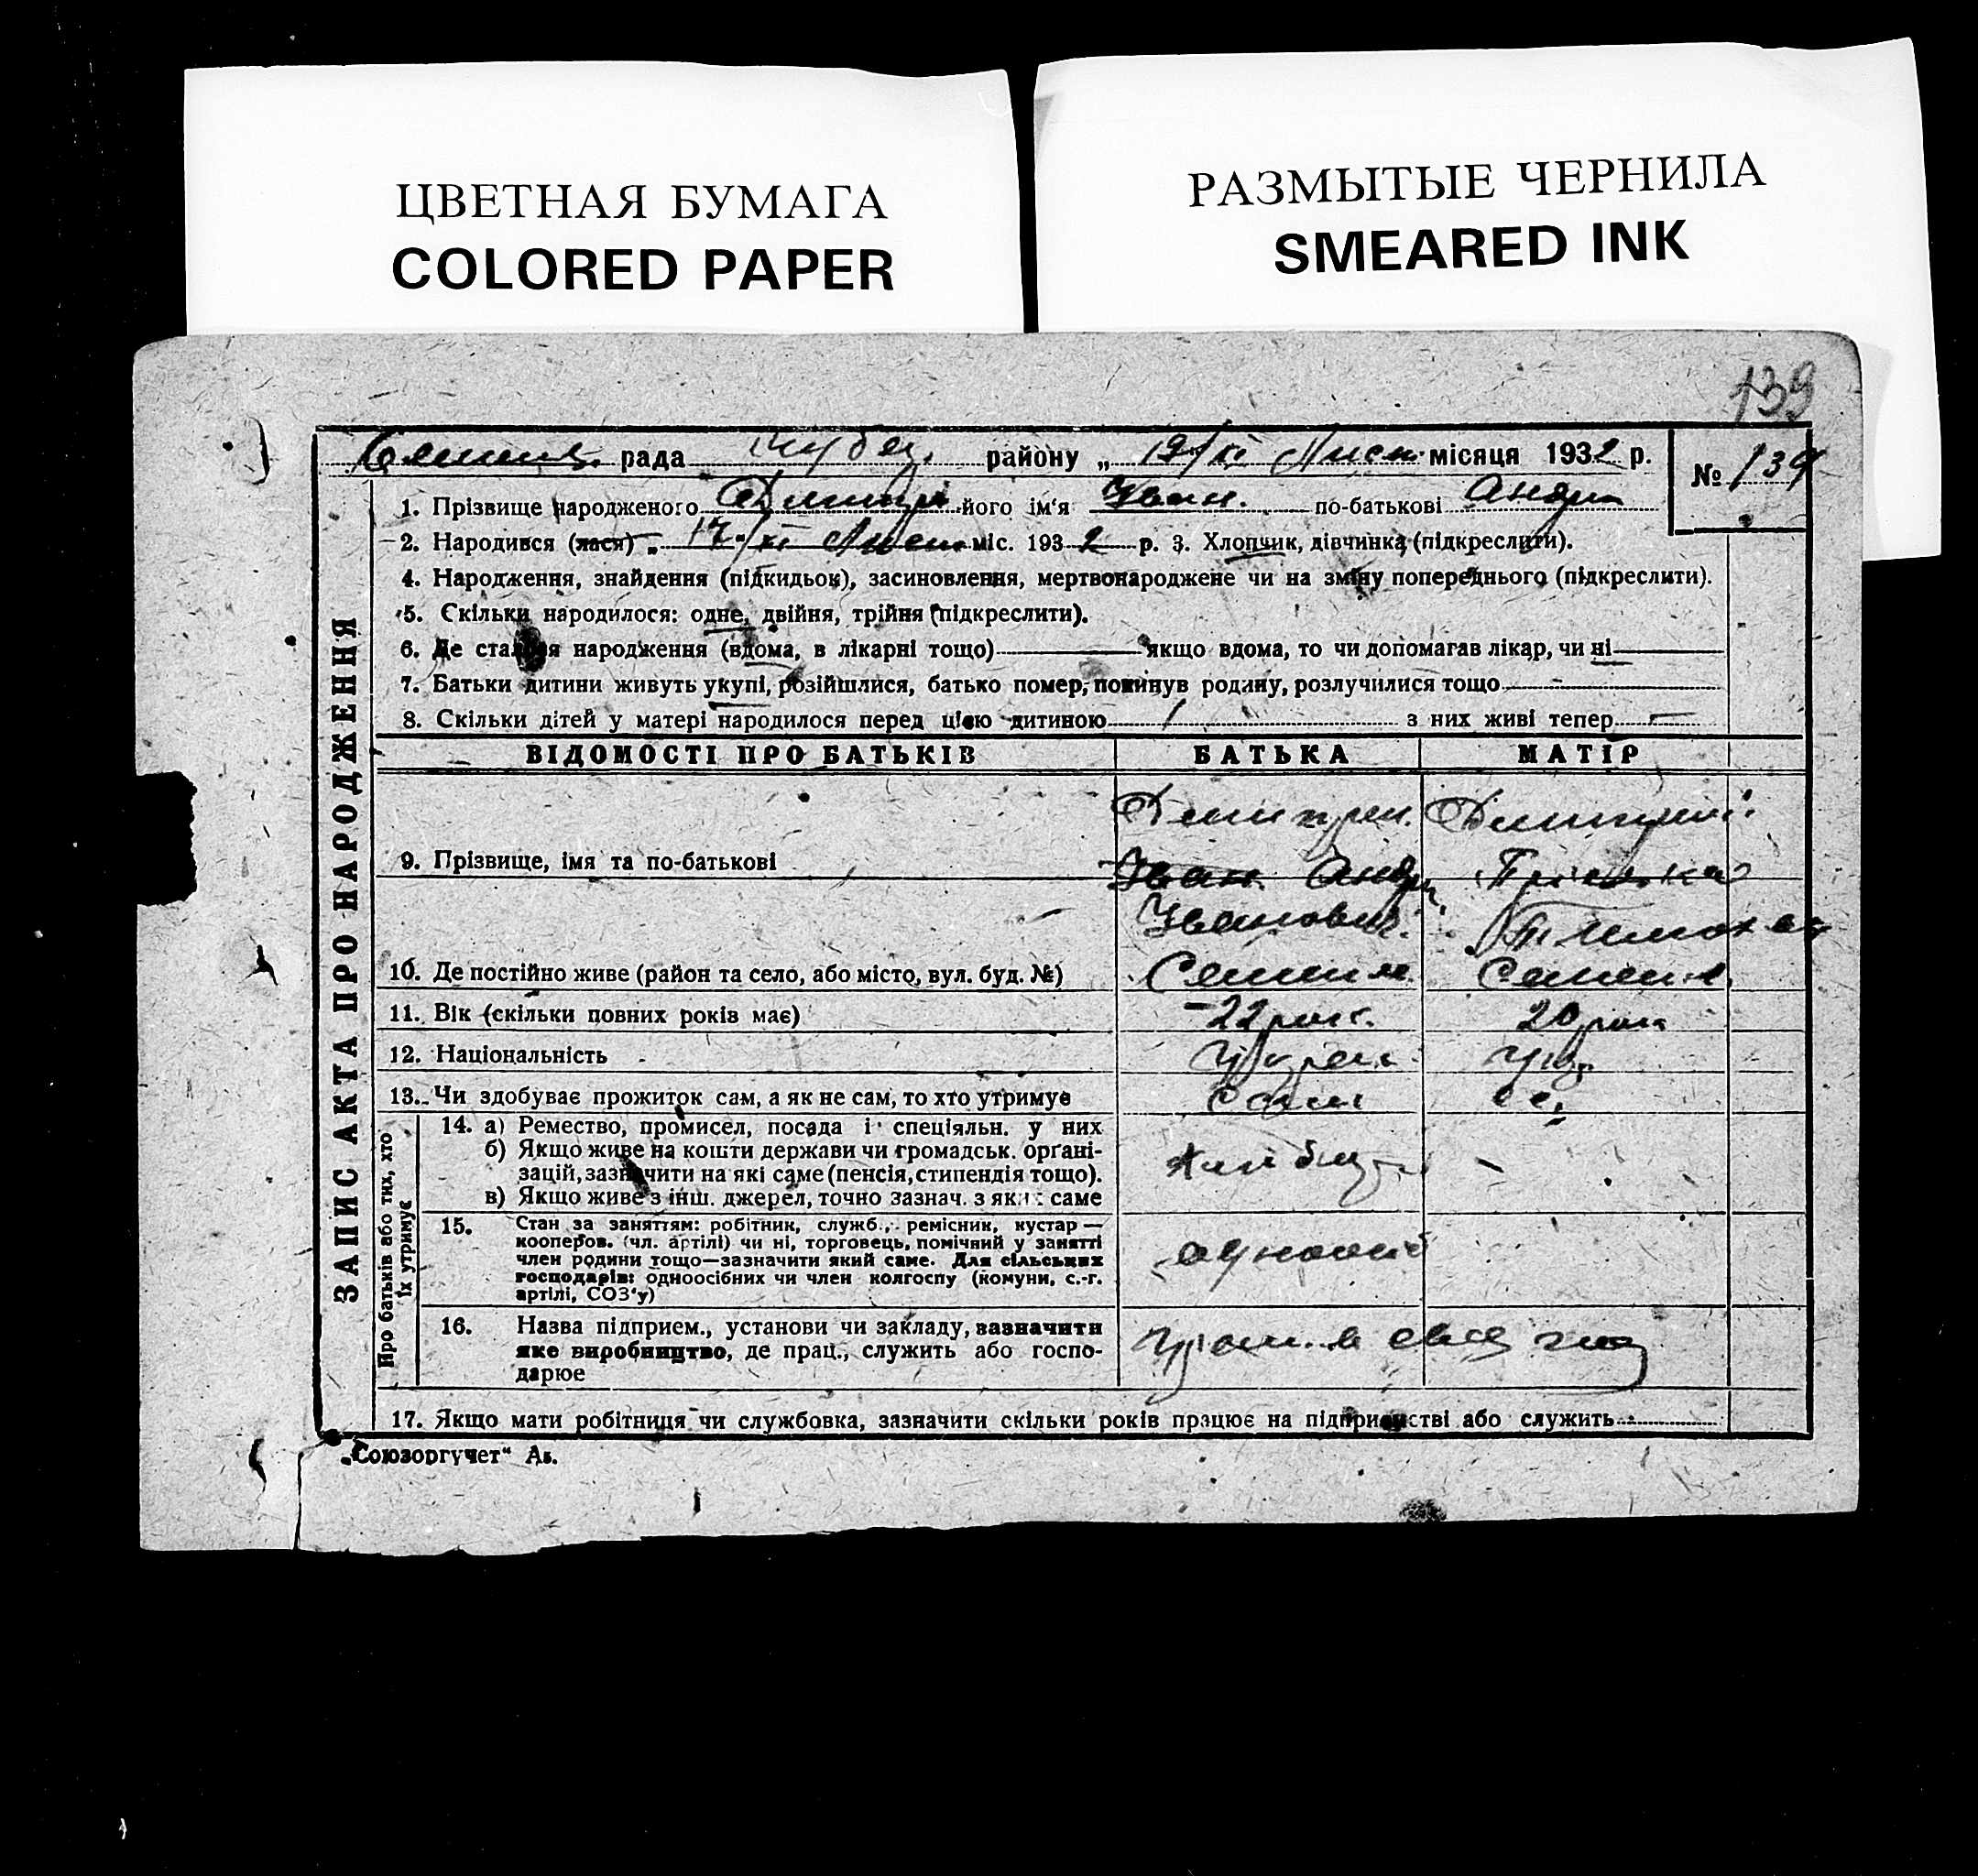 ЦВЕТНАЯ БУМАГА
COLORED PAPER
РАЗМЫТЫЕ ЧЕРНИЛА
SMEARED INK
139
рада району „ 19/XI Лист. місяця 1932 р.
№ 139
1. Прізвище народженого Дмитр його ім'я Іван. по-батькові Андр
2. Народився (лася) „ 17/XI Лист. міс. 1932 р. 3. Хлопчик, дівчинка (підкреслити).
4. Народження, знайдення (підкидьок), засиновлення, мертвонароджене чи на зміну попереднього (підкреслити).
5. Скільки народилося: одне, двійня, трійня (підкреслити).
6. Де сталося народження (вдома, в лікарні тощо) якщо вдома, то чи допомагав лікар, чи ні
7. Батьки дитини живуть укупі, розійшлися, батько помер, покинув родину, розлучилися тощо
8. Скільки дітей у матері народилося перед цією дитиною 1 з них живі тепер —
ЗАПИС АКТА ПРО НАРОДЖЕННЯ
ВІДОМОСТІ ПРО БАТЬКІВ БАТЬКА МАТІР
9. Прізвище, імя та по-батькові
Іван Андр
Іванович
10. Де постійно живе (район та село, або місто, вул. буд. №)
11. Вік (скільки повних років має) 22 рок. 20 рок
12. Національність Украї. Укр.
13. Чи здобуває прожиток сам, а як не сам, то хто утримує сам
Про батьків або тих, хто їх утримує
14. а) Ремество, промисел, посада і спеціяльн. у них
б) Якщо живе на кошти держави чи громадськ. органі-
зацій, зазначити на які саме (пенсія, стипендія тощо).
в) Якщо живе з інш. джерел, точно зазнач. з яких саме
15. Стан за заняттям: робітник, служб., ремісник, кустар —
кооперов. (чл. артілі) чи ні, торговець, помічний у занятті
член родини тощо—зазначити який саме. Для сільських
господарів: одноосібних чи член колгоспу (комуни, с.-г.
артілі, СОЗ'у)
16. Назва підприєм., установи чи закладу, зазначити
яке виробництво, де прац., служить або госпо-
дарює
17. Якщо мати робітниця чи службовка, зазначити скільки років працює на підприємстві або служить
„Союзоргучет“ Ав.